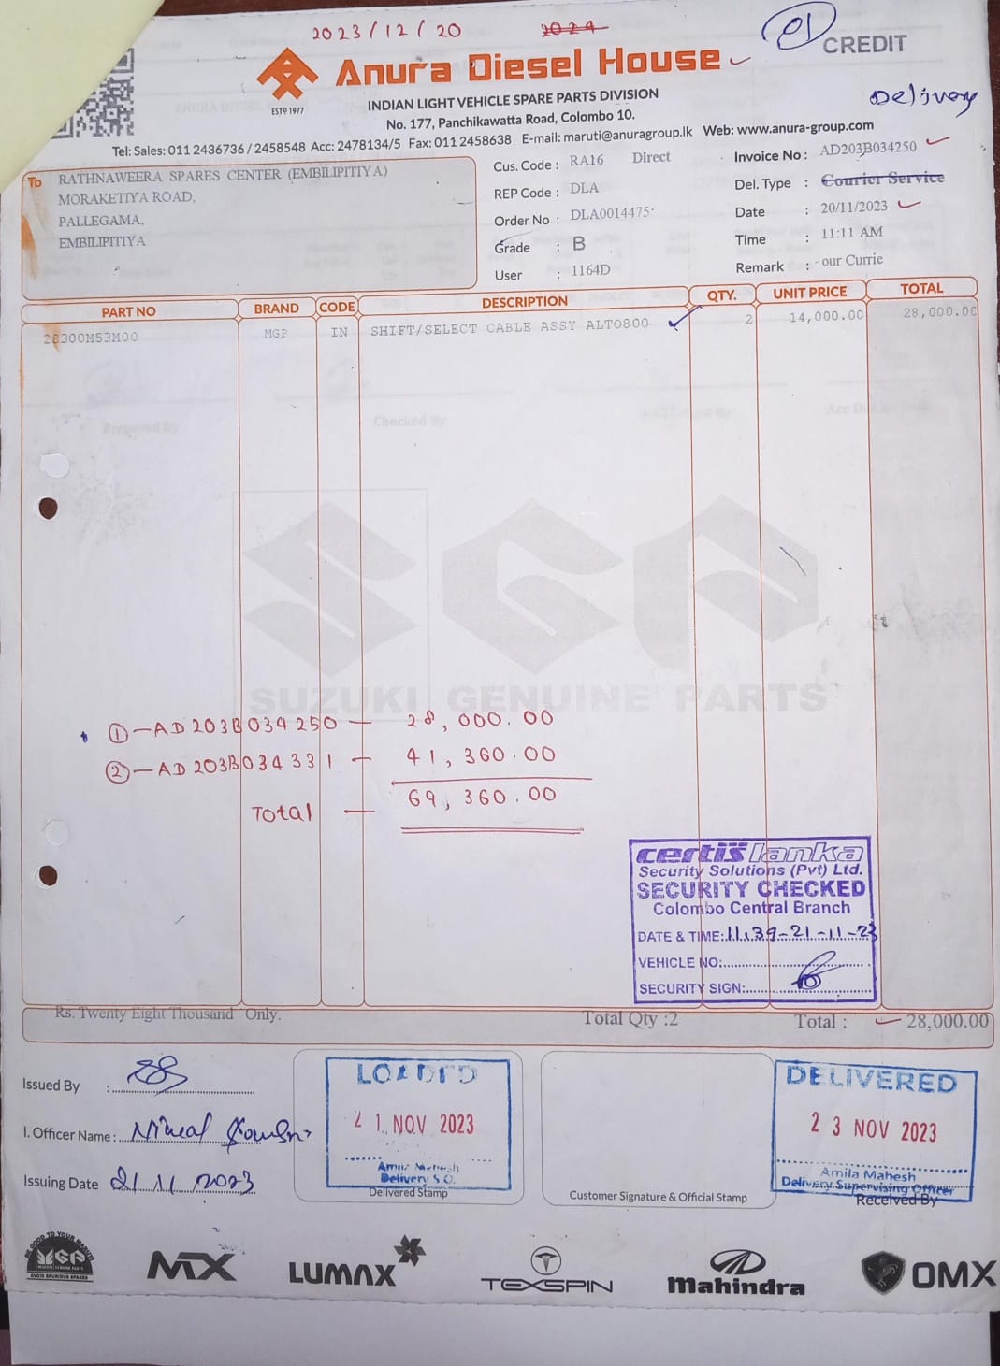 2023/12/20 2024
01 CREDIT
Anura Diesel House
ESTD 1977
INDIAN LIGHT VEHICLE SPARE PARTS DIVISION
Delivery
No. 177, Panchikawatta Road, Colombo 10.
Tel: Sales: 011 2436736 / 2458548 Acc: 2478134/5 Fax: 011 2458638 E-mail: maruti@anuragroup.lk Web: www.anura-group.com
To RATHNAWEERA SPARES CENTER (EMBILIPITIYA)
MORAKETIYA ROAD,
PALLEGAMA,
EMBILIPITIYA
Cus. Code : RA16 Direct
REP Code : DLA
Order No : DLA0014475
Grade : B
User : 1164D
Invoice No: AD203B034250
Del. Type : Courier Service
Date : 20/11/2023
Time : 11:11 AM
Remark : -our Curric
PART NO BRAND CODE DESCRIPTION QTY. UNIT PRICE TOTAL
28300M53M00 MGP IN SHIFT/SELECT CABLE ASSY ALTO800 2 14,000.00 28,000.00
Prepared By Checked By
SGP
SUZUKI GENUINE PARTS
① - AD203B034250 — 28,000.00
② - AD203B034331 — 41,360.00
Total — 69,360.00
certis lanka
Security Solutions (Pvt) Ltd.
SECURITY CHECKED
Colombo Central Branch
DATE & TIME: 11.39-21-11-23
VEHICLE NO:
SECURITY SIGN:
Rs. Twenty Eight Thousand Only. Total Qty :2 Total : 28,000.00
Issued By :
I. Officer Name :
Issuing Date 21/11/2023
LOADED
21 NOV 2023
Amila Mahesh
Delivery S.O.
Delivered Stamp
Customer Signature & Official Stamp
DELIVERED
23 NOV 2023
Amila Mahesh
Delivery Supervising Officer
Received By
MGP MX LUMAX TEXSPIN Mahindra OMX